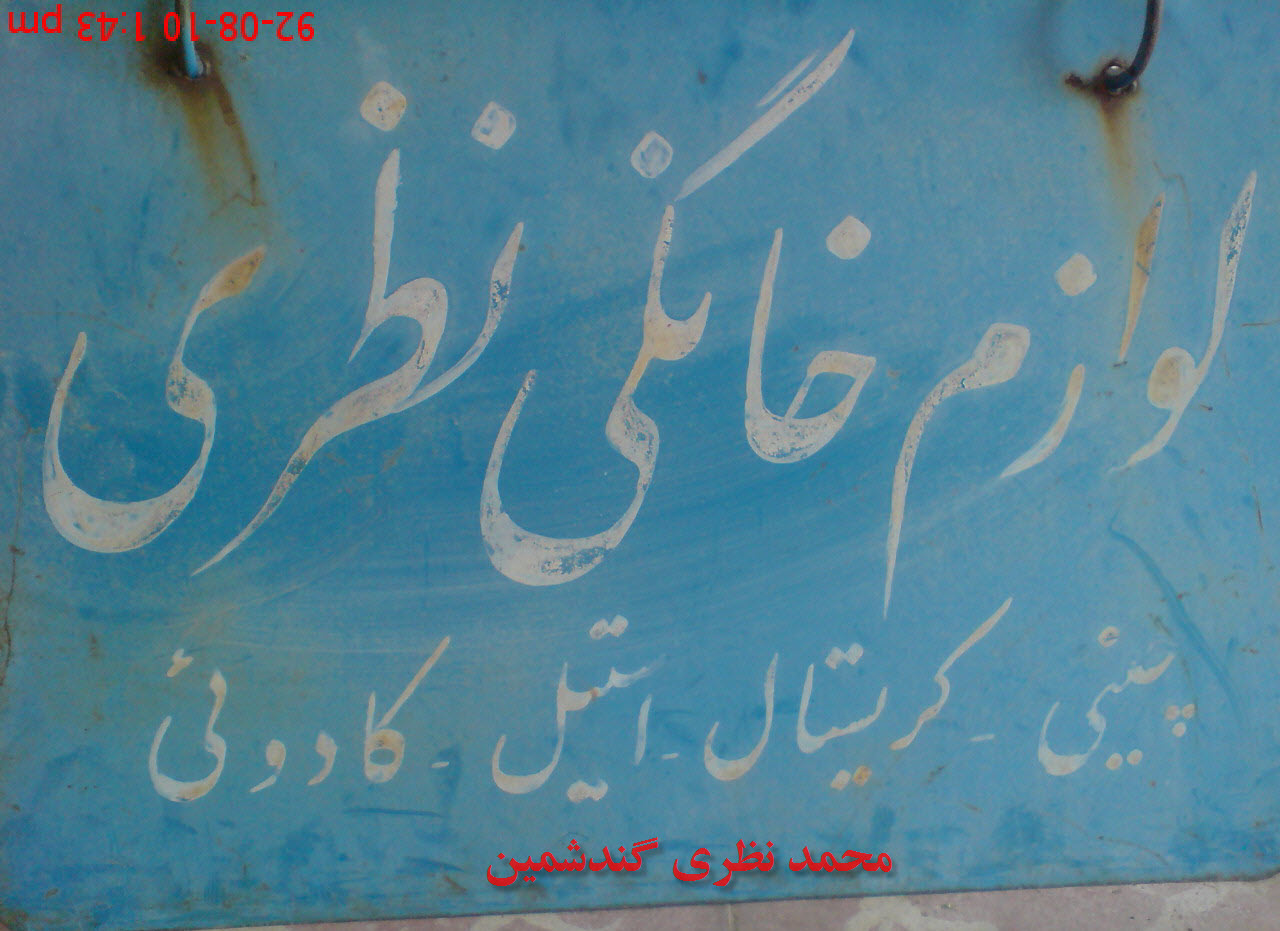 92-08-10 1:43 pm
لوازم خانگی نظری
چینی - کریستال - استیل - کادوئی
محمد نظری گندشمین